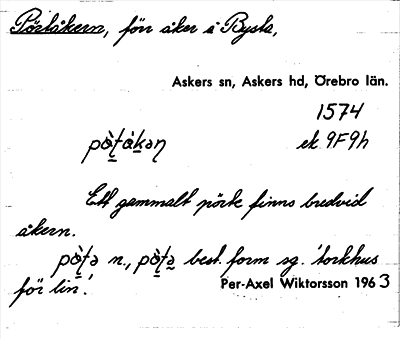 Pörtåkern, förr åker i Bysta,
Askers sn, Askers hd, Örebro län.
1574
ek. 9F9h
Ett gammalt pörte finns bredvid
åkern.
n., best. form sg. 'torkhus
för lin'.
Per-Axel Wiktorsson 1963